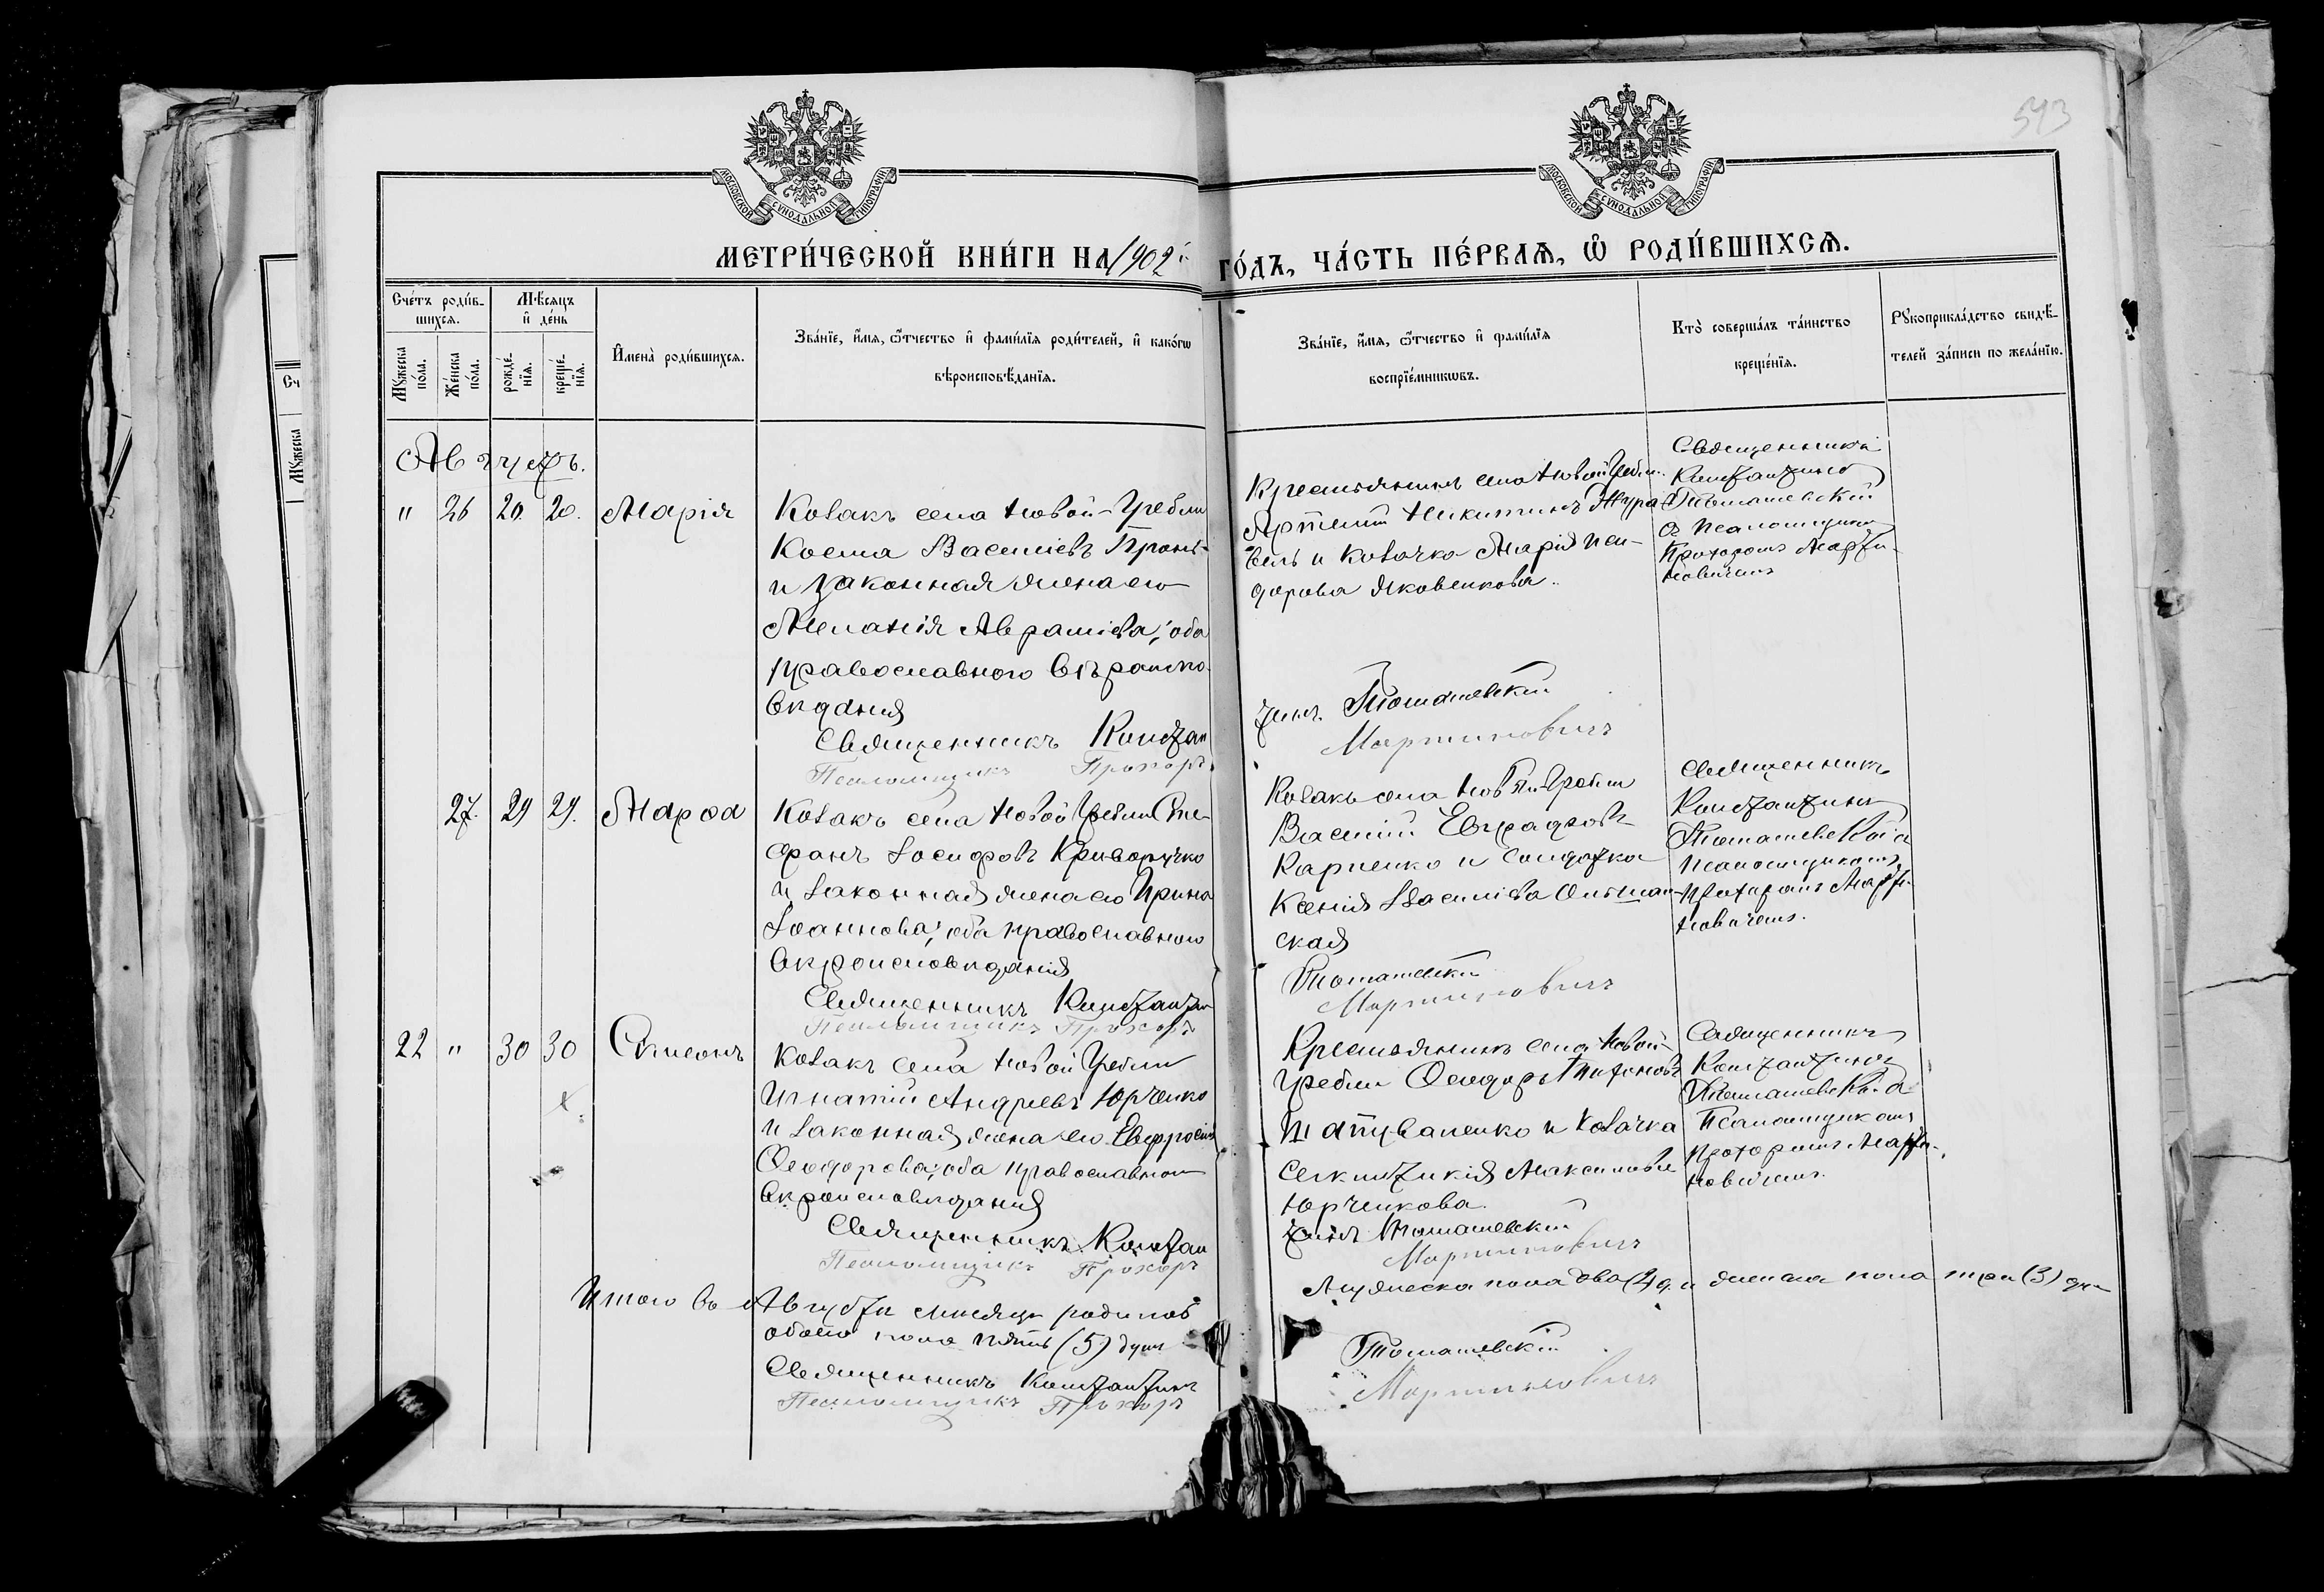 543
МОСКОВСКОЙ СѴНОДАЛЬНОЙ ТИПОГРАФІИ
МОСКОВСКОЙ СѴНОДАЛЬНОЙ ТИПОГРАФІИ
МЕТРИ́ЧЕСКОЙ КНИ́ГИ НА 1902 ГО́ДЪ, ЧА́СТЬ ПЕ́РВАѦ, Ѿ РОДИ́ВШИХСѦ.
Сче́тъ роди́в-
шихсѧ.
Мꙋжеска по́ла.
Же́нска по́ла.
Мѣсѧцъ и҆ де́нь
рожде́-
нїѧ.
креще́-
нїѧ.
И҆мена̀ роди́вшихсѧ.
Зва́нїе, и҆́мѧ, ѻ҆́тчество и҆ фами́лїѧ роди́телей, и҆ како́гѡ
вѣроисповѣ́данїѧ.
Зва́нїе, и҆́мѧ, ѻ҆́тчество и҆ фами́лїѧ
воспрїе́мникѡвъ.
Кто̀ соверша́лъ та́инство
креще́нїѧ.
Рꙋкоприкла́дство свидѣ́-
телей за́писи по жела́нїю.
Августъ.
" 26 20. 20. Марія
Козакъ села Новой-Гребли
Косма Василіевъ
и законная жена его
Меланія Авраміева; оба
православнаго вѣроиспо-
вѣданія
Священникъ Констан
Псаломщикъ Прохоръ
Крестьянинъ села Новой Гребли
Артемій Никитинъ Жура-
вель и козачка Марія Иси-
дорова Яковенкова.
тинъ Томашевскій
Мартиновичъ
Священникъ
Константинъ
Томашевскій
съ псаломщикомъ
Прохоромъ Марти-
новичемъ
27. 29 29. Марѳа
Козакъ села Новой Гребли Сте-
фанъ Іосифовъ Криворучко
и законная жена его Ирина
Іоаннова; оба православнаго
вѣроисповѣданія
Священникъ Константин
Псаломщикъ Прохоръ
Козакъ села Новой-Гребли
Василій Евграфовъ
Карпенко и солдатка
Ксенія Василіева Ольшан-
ская
Томашевскій
Мартиновичъ
Священникъ
Константинъ
Томашевскій съ
псаломщикомъ
Прохоромъ Марти-
новичемъ.
22 " 30 30 Симеонъ
Козакъ села Новой Гребли
Игнатій Андреевъ Юрченко
и законная жена его Евфросинія
Ѳеодорова; оба православнаго
вѣроисповѣданія
Священникъ Констан
Псаломщикъ Прохоръ
Крестьянинъ села Новой-
Гребли Ѳеодоръ
Шаповаленко и козачка
Максимова
Юрченкова.
тинъ Томашевскій
Мартиновичъ
Священникъ
Константинъ
Томашевскій съ
Псаломщикомъ
Прохоромъ Марти-
новичемъ.
Итого въ Августѣ мѣсяцѣ родилось
обоего пола пять (5) душъ
Мужеска пола два (2) д. и женска пола три (3) ду
Священникъ Константинъ
Томашевскій
Псаломщикъ Прохоръ
Мартиновичъ